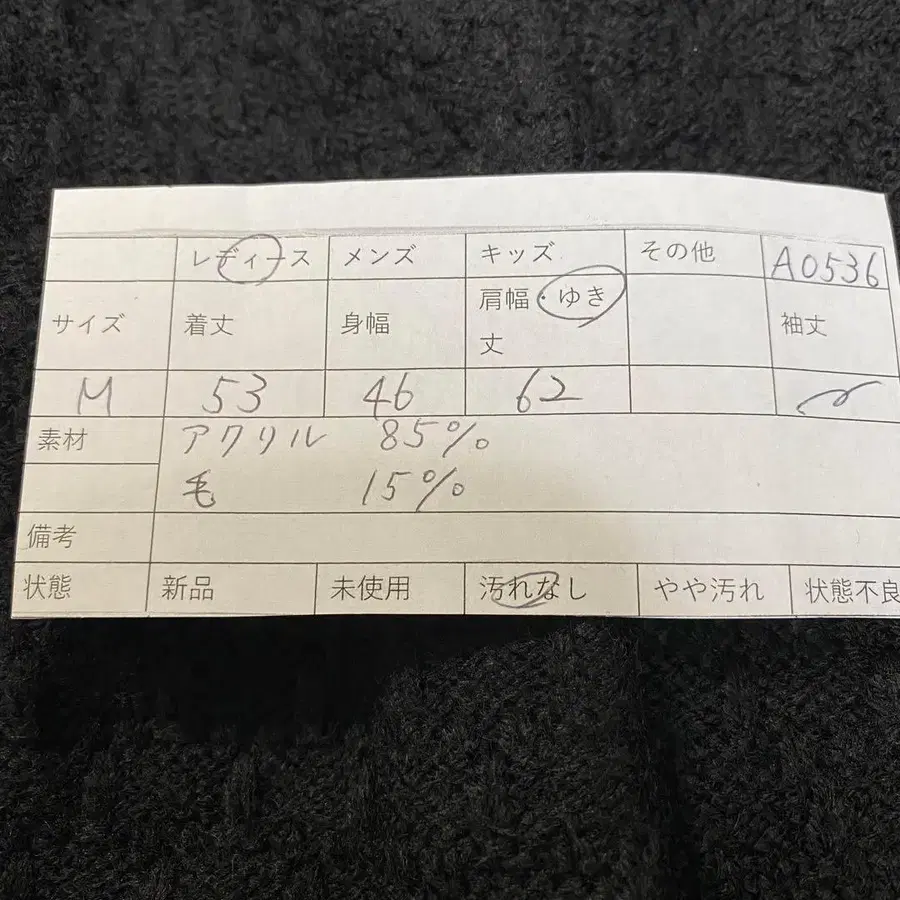 レディース メンズ キッズ その他 A0536
サイズ 着丈 身幅 肩幅・ゆき丈 袖丈
M 53 46 62
素材 アクリル 85%
毛 15%
備考
状態 新品 未使用 汚れなし やや汚れ 状態不良